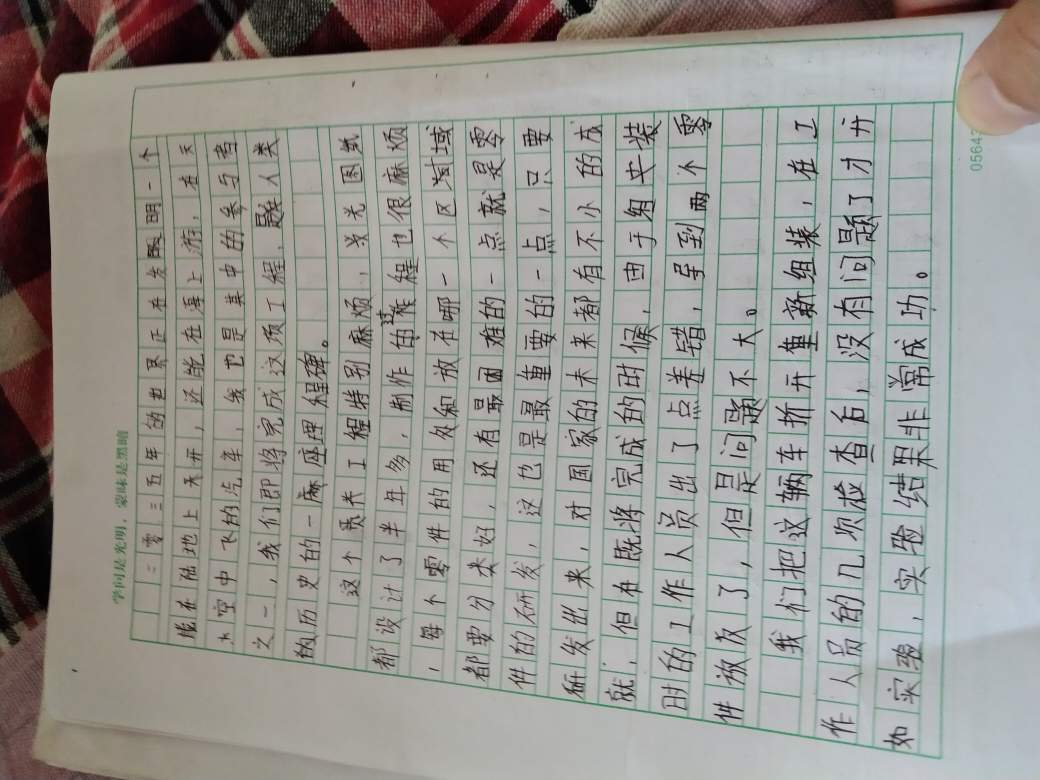 学问是光明，蒙昧是黑暗
二零三五年的世界正在发明一个
能在陆地上天开，还能在海上游，在天
上空中飞的汽车，我也是其中的参与者
之一，我们即将完成这项工程，是人类
的历史的一座里程碑。
这个工程特别麻烦，光图纸
都设计了半年多，制作的过程也很麻烦
，每个零件的用处和放在哪一个区域
都要分类好，还有最困难的一点就是零
件的研发，这也是最重要的一点，只要
研发出来，对国家的未来都有不小的成
就，但在既将完成的时候，由于匆安装
时的工作人员出了点差错，导到两个零
件放反了，但是问题不大。
我们把这辆车拆开重新组装，在工
作人员的几次检查后，没有问题了才开
如实验，实验结果非常成功。